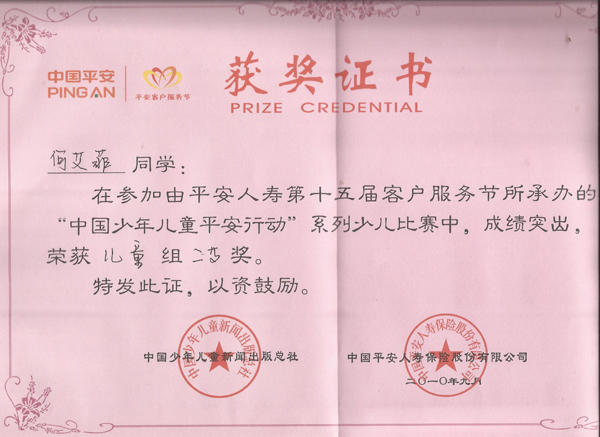 中国平安
PINGAN
平安客户服务节
获奖证书
PRIZE CREDENTIAL
何艾菲 同学：
在参加由平安人寿第十五届客户服务节所承办的
“中国少年儿童平安行动”系列少儿比赛中，成绩突出，
荣获 儿童 组 奖。
特发此证，以资鼓励。
中国少年儿童新闻出版总社
中国平安人寿保险股份有限公司
二〇一〇年九月
中国少年儿童新闻出版总社
中国平安人寿保险股份有限公司